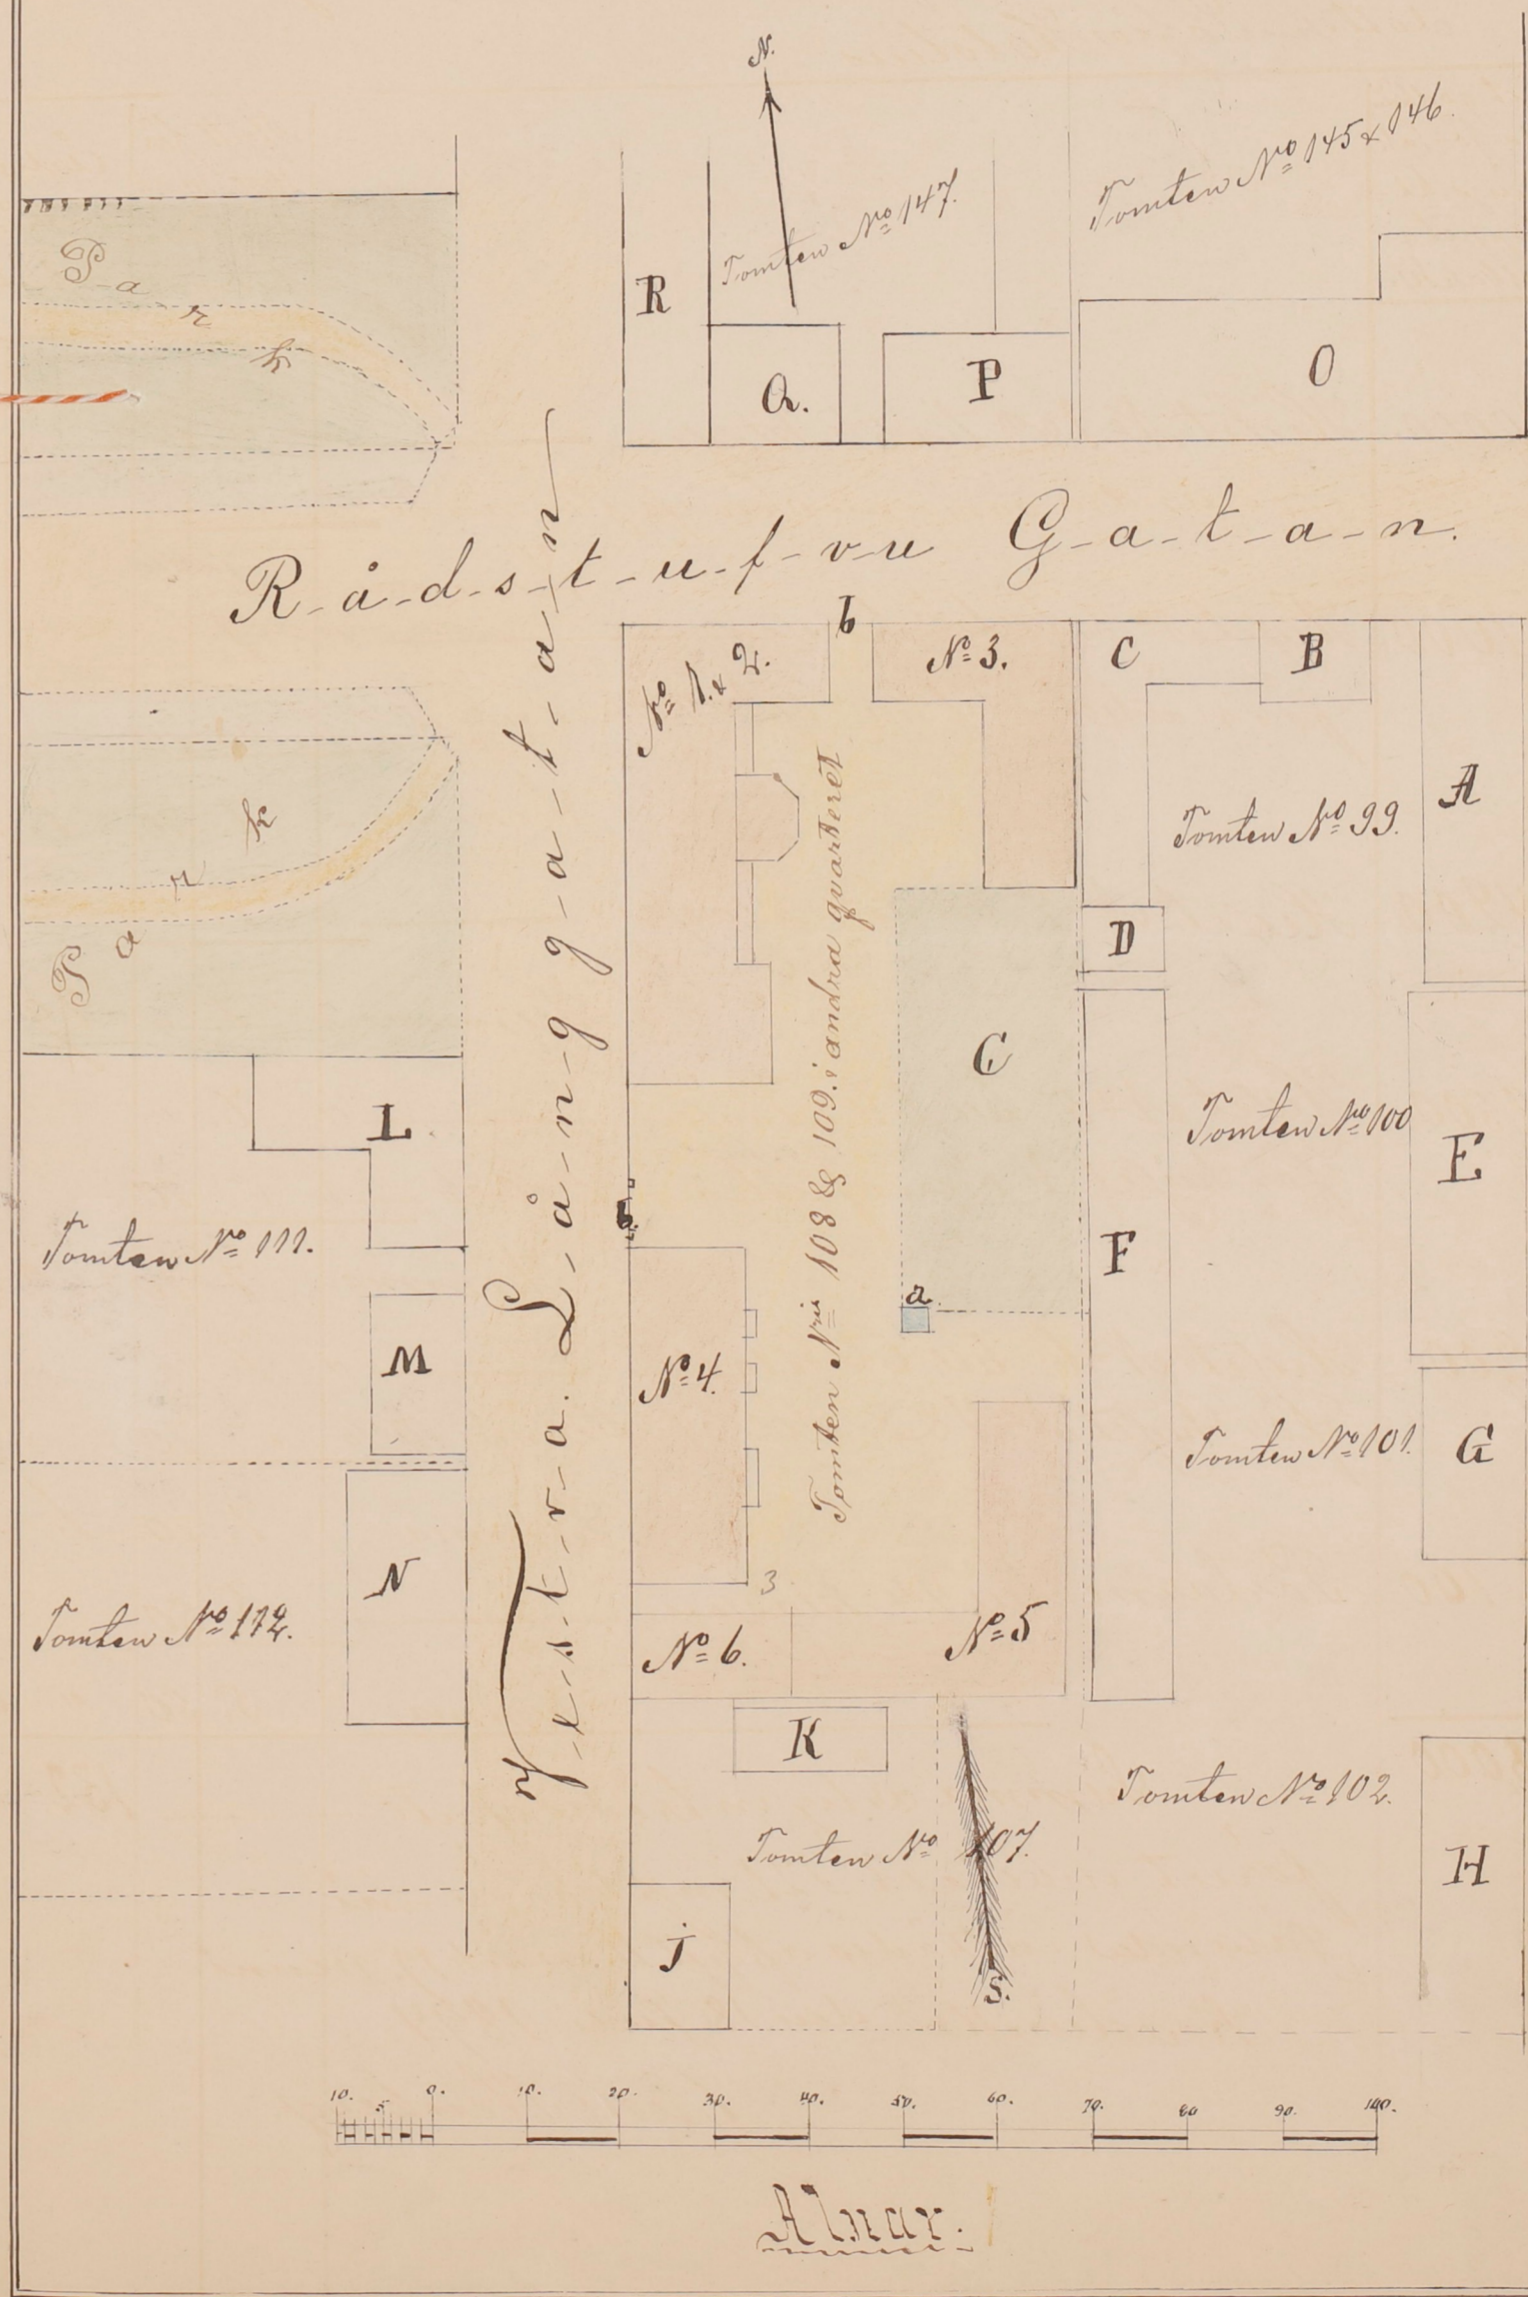 N.
Tomten No 147.
Tomten No 145 & 146.
Park
R
Q.
P
O
Rådstufvu Gatan.
Vestra Långgatan
b
No 1. & 2.
No 3.
C
B
A
Tomten No 99.
D
Park
Tomten Nris 108 & 109. i andra qvarteret
C
L.
Tomten No 100
E
b.
F
Tomten No 111.
a.
M
No 4.
Tomten No 101.
G
N
3
Tomten No 112.
No 6.
No 5
K
Tomten No 102.
Tomten No 107.
H
j
S.
10. 5 0. 10. 20. 30. 40. 50. 60. 70. 80 90. 100.
Alnar.